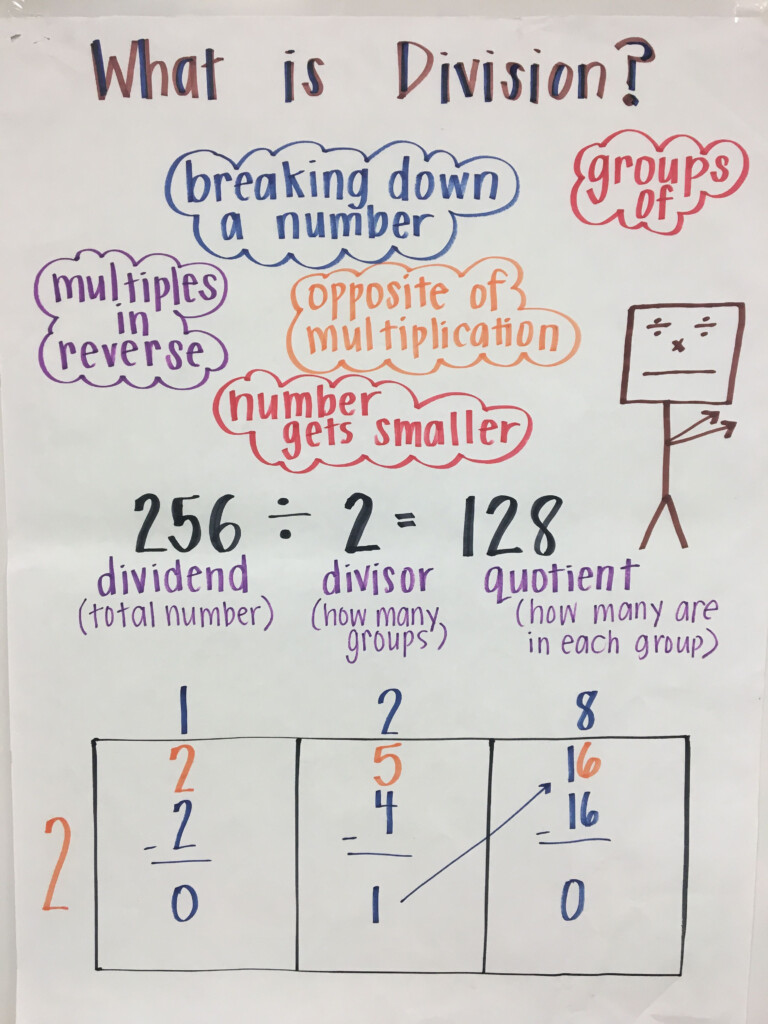 What is Division?
breaking down
a number
groups
of
multiples
in
reverse
opposite of
multiplication
number
gets smaller
÷ ÷
x
256 ÷ 2 = 128
dividend
(total number)
divisor
(how many
groups)
quotient
(how many are
in each group)
1 2 8
2 5 16
- 2 - 4 - 16
2
0 1 0